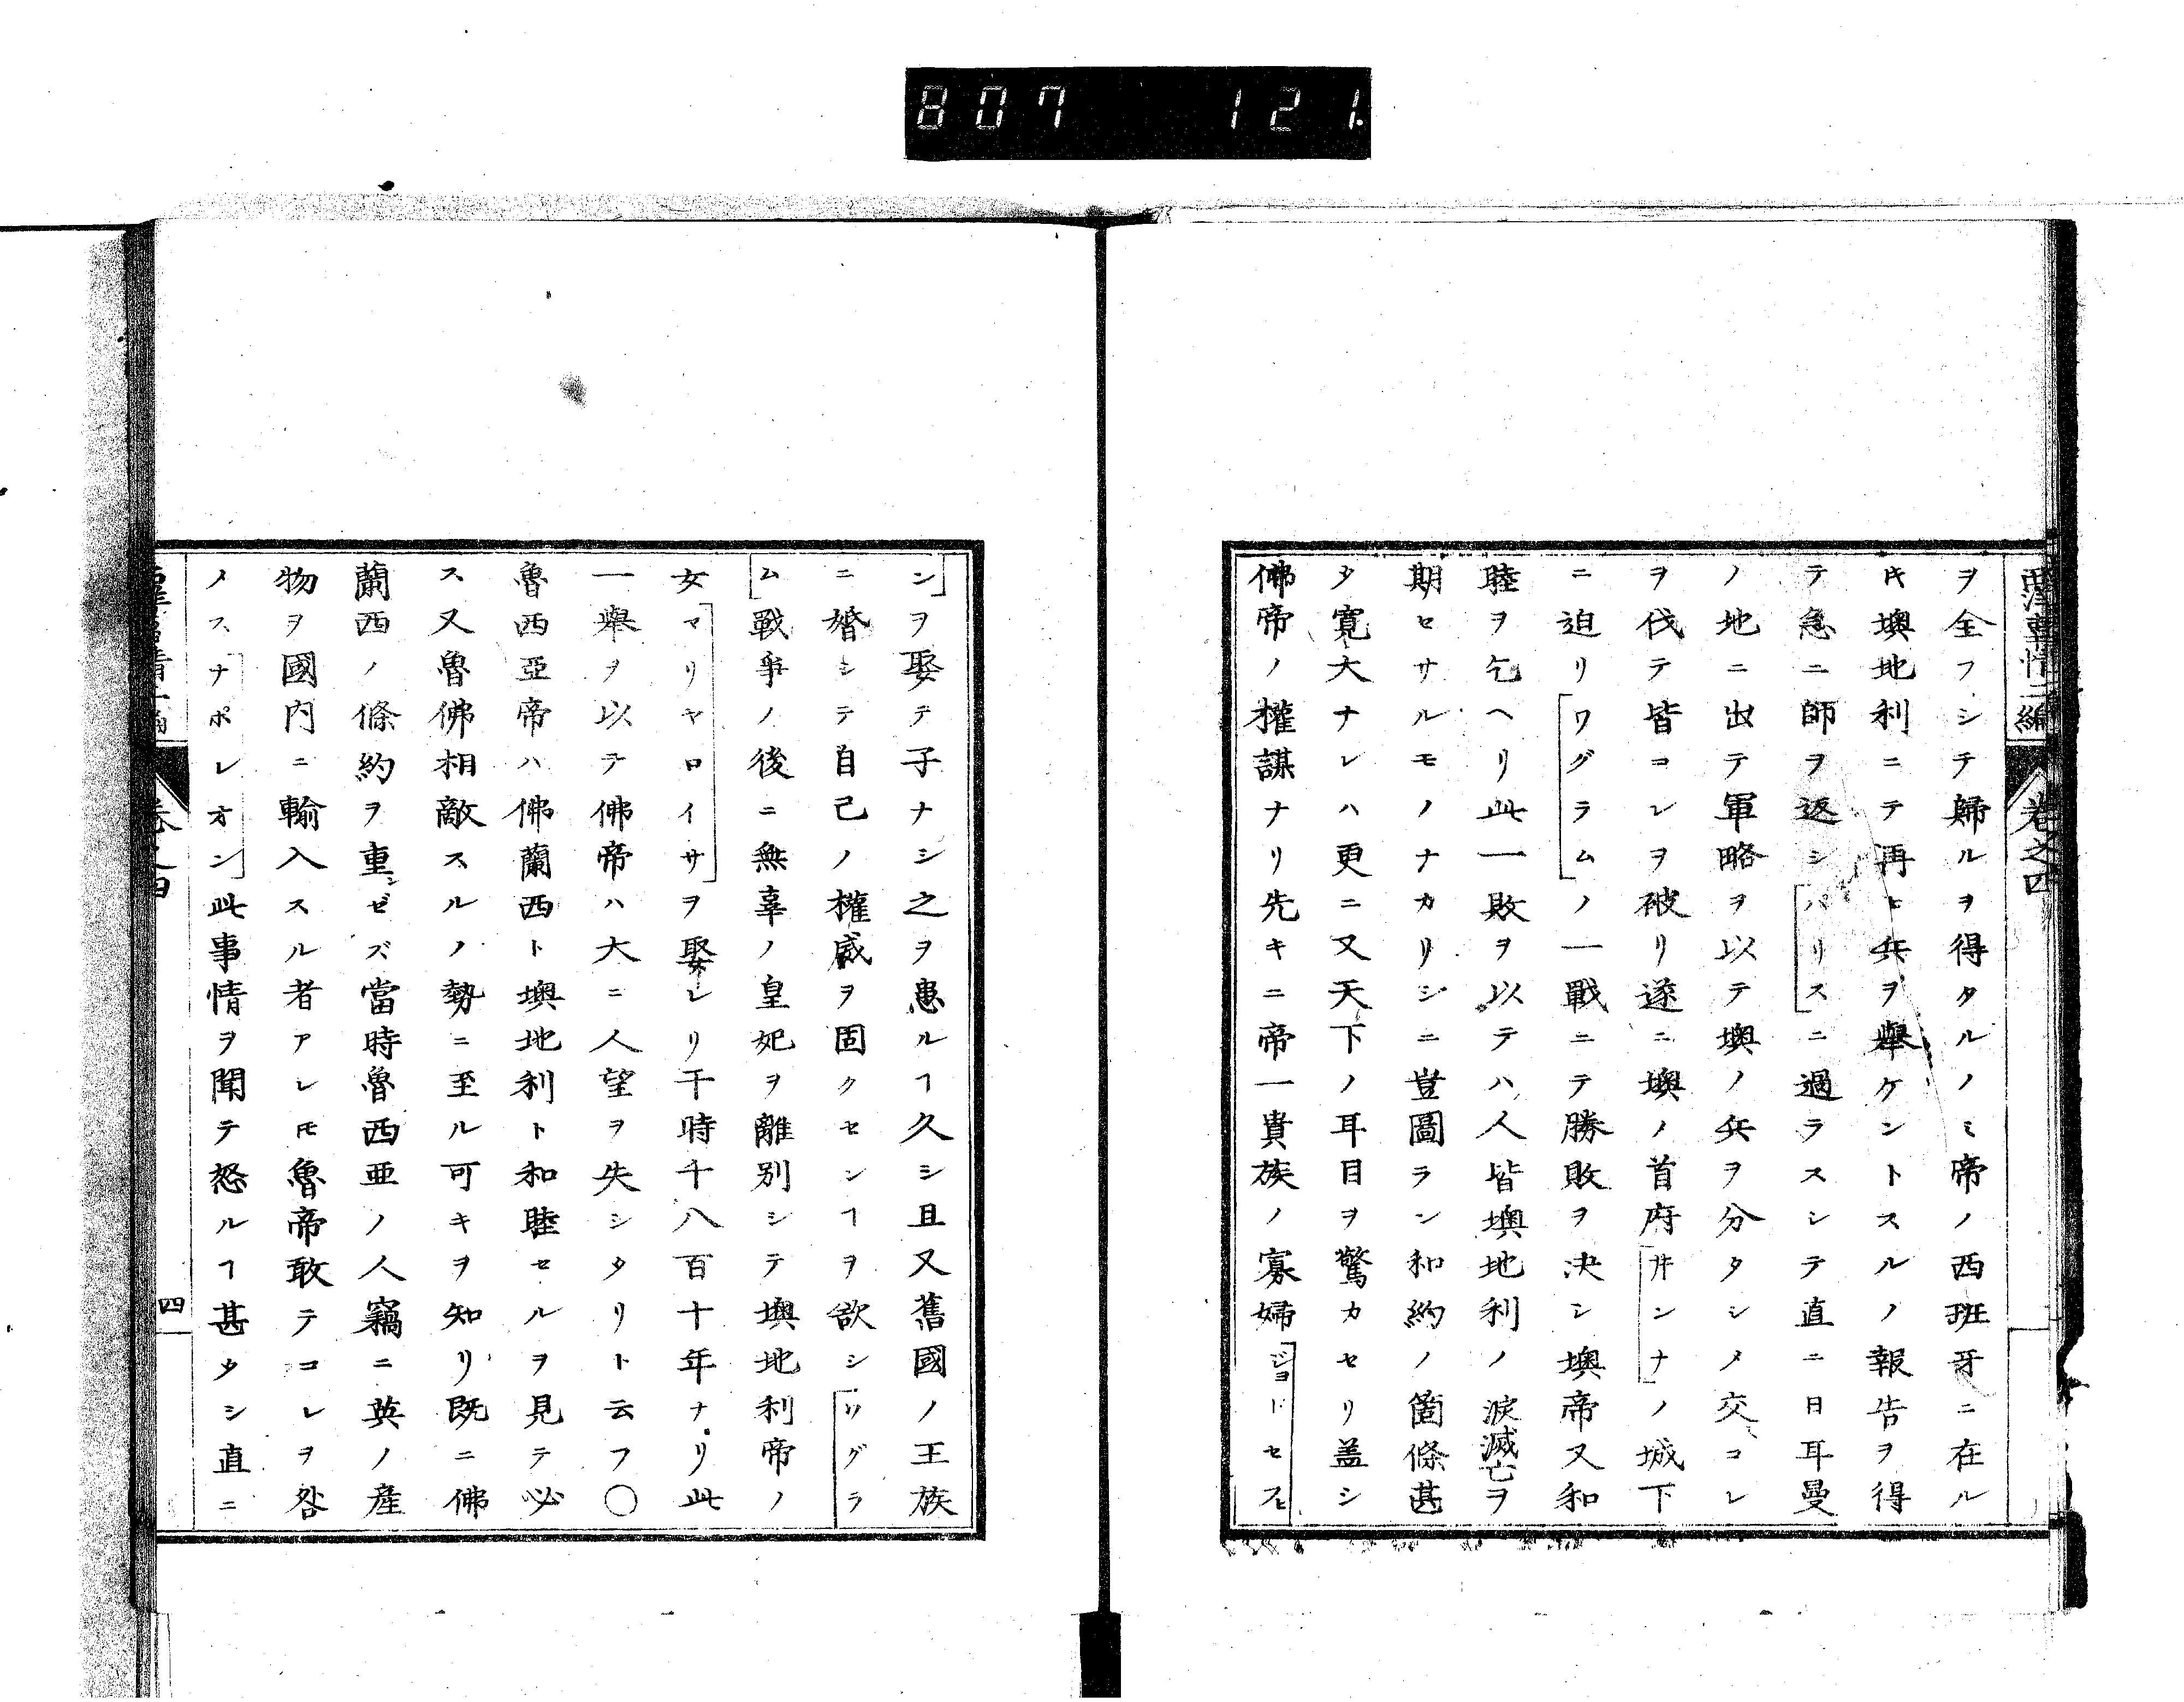 807 121.
西洋事情二編 卷之四
ヲ全フシテ歸ルヲ得タルノミ帝ノ西班牙ニ在ル
トキ墺地利ニテ再ヒ兵ヲ舉ケントスルノ報告ヲ得
テ急ニ師ヲ返シ[パリス]ニ過ラスシテ直ニ日耳曼
ノ地ニ出テ軍略ヲ以テ墺ノ兵ヲ分タシメ交コレ
ヲ伐テ皆コレヲ破リ遂ニ墺ノ首府[井ンナ]ノ城下
ニ迫リ[ワグラム]ノ一戰ニテ勝敗ヲ决シ墺帝又和
睦ヲ乞ヘリ此一敗ヲ以テハ人皆墺地利ノ滅亡ヲ
期セサルモノナカリシニ豈圖ラン和約ノ箇條甚
タ寛大ナレハ更ニ又天下ノ耳目ヲ驚カセリ盖シ
佛帝ノ權謀ナリ先キニ帝一貴族ノ寡婦[ジョセフヒ
ン]ヲ娶テ子ナシ之ヲ患ルヿ久シ且又舊國ノ王族
ニ婚シテ自己ノ權威ヲ固クセンヿヲ欲シ[ワグラ
ム]戰爭ノ後ニ無辜ノ皇妃ヲ離別シテ墺地利帝ノ
女[マリヤロイサ]ヲ娶レリ干時千八百十年ナリ此
一舉ヲ以テ佛帝ハ大ニ人望ヲ失シタリト云フ〇
魯西亞帝ハ佛蘭西ト墺地利ト和睦セルヲ見テ必
ス又魯佛相敵スルノ勢ニ至ル可キヲ知リ既ニ佛
蘭西ノ條約ヲ重ンゼズ當時魯西亜ノ人竊ニ英ノ產
物ヲ國内ニ輸入スル者アレモ魯帝敢テコレヲ咎
ノス[ナポレオン]此事情ヲ聞テ怒ルヿ甚タシ直ニ
卷之四
四